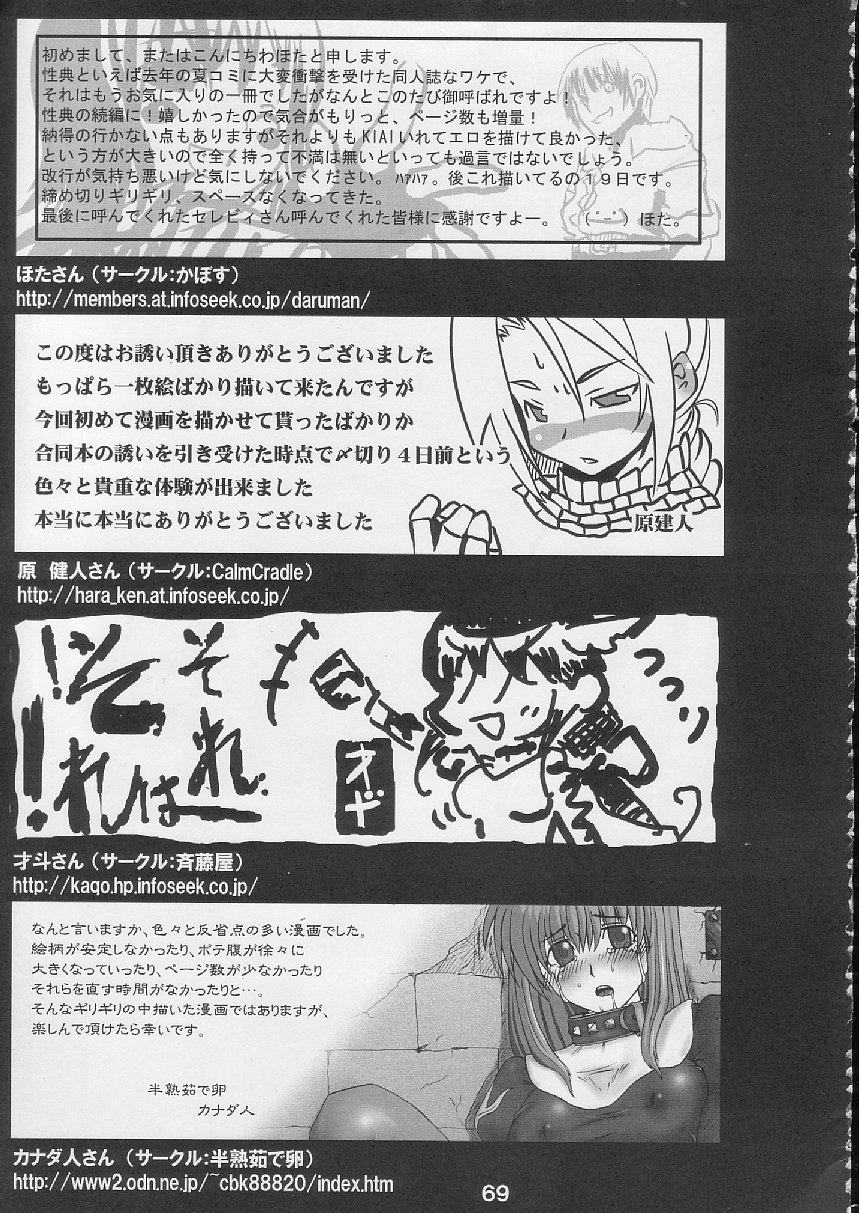 初めまして、またはこんにちわほたと申します。
性典といえば去年の夏コミに大変衝撃を受けた同人誌なワケで、
それはもうお気に入りの一冊でしたがなんとこのたび御呼ばれですよ！
性典の続編に！嬉しかったので気合がもりっと、ページ数も増量！
納得の行かない点もありますがそれよりもKIAIいれてエロを描けて良かった、
という方が大きいので全く持って不満は無いといっても過言ではないでしょう。
改行が気持ち悪いけど気にしないでください。ﾊｱﾊｱ。後これ描いてるの１９日です。
締め切りギリギリ、スペースなくなってきた。
最後に呼んでくれたセレビィさん呼んでくれた皆様に感謝ですよー。　（・−・）ほた。
ほたさん（サークル：かぼす）
http://members.at.infoseek.co.jp/daruman/
この度はお誘い頂きありがとうございました
もっぱら一枚絵ばかり描いて来たんですが
今回初めて漫画を描かせて貰ったばかりか
合同本の誘いを引き受けた時点で〆切り４日前という
色々と貴重な体験が出来ました
本当に本当にありがとうございました
原建人
原　健人さん（サークル：CalmCradle）
http://hara_ken.at.infoseek.co.jp/
つづり
それ、
それは
！！
才斗さん（サークル：斉藤屋）
http://kaqo.hp.infoseek.co.jp/
なんと言いますか、色々と反省点の多い漫画でした。
絵柄が安定しなかったり、ボテ腹が徐々に
大きくなっていったり、ページ数が少なかったり
それらを直す時間がなかったりと…。
そんなギリギリの中描いた漫画ではありますが、
楽しんで頂けたら幸いです。
半熟茹で卵
カナダ人
カナダ人さん（サークル：半熟茹で卵）
http://www2.odn.ne.jp/~cbk88820/index.htm
69